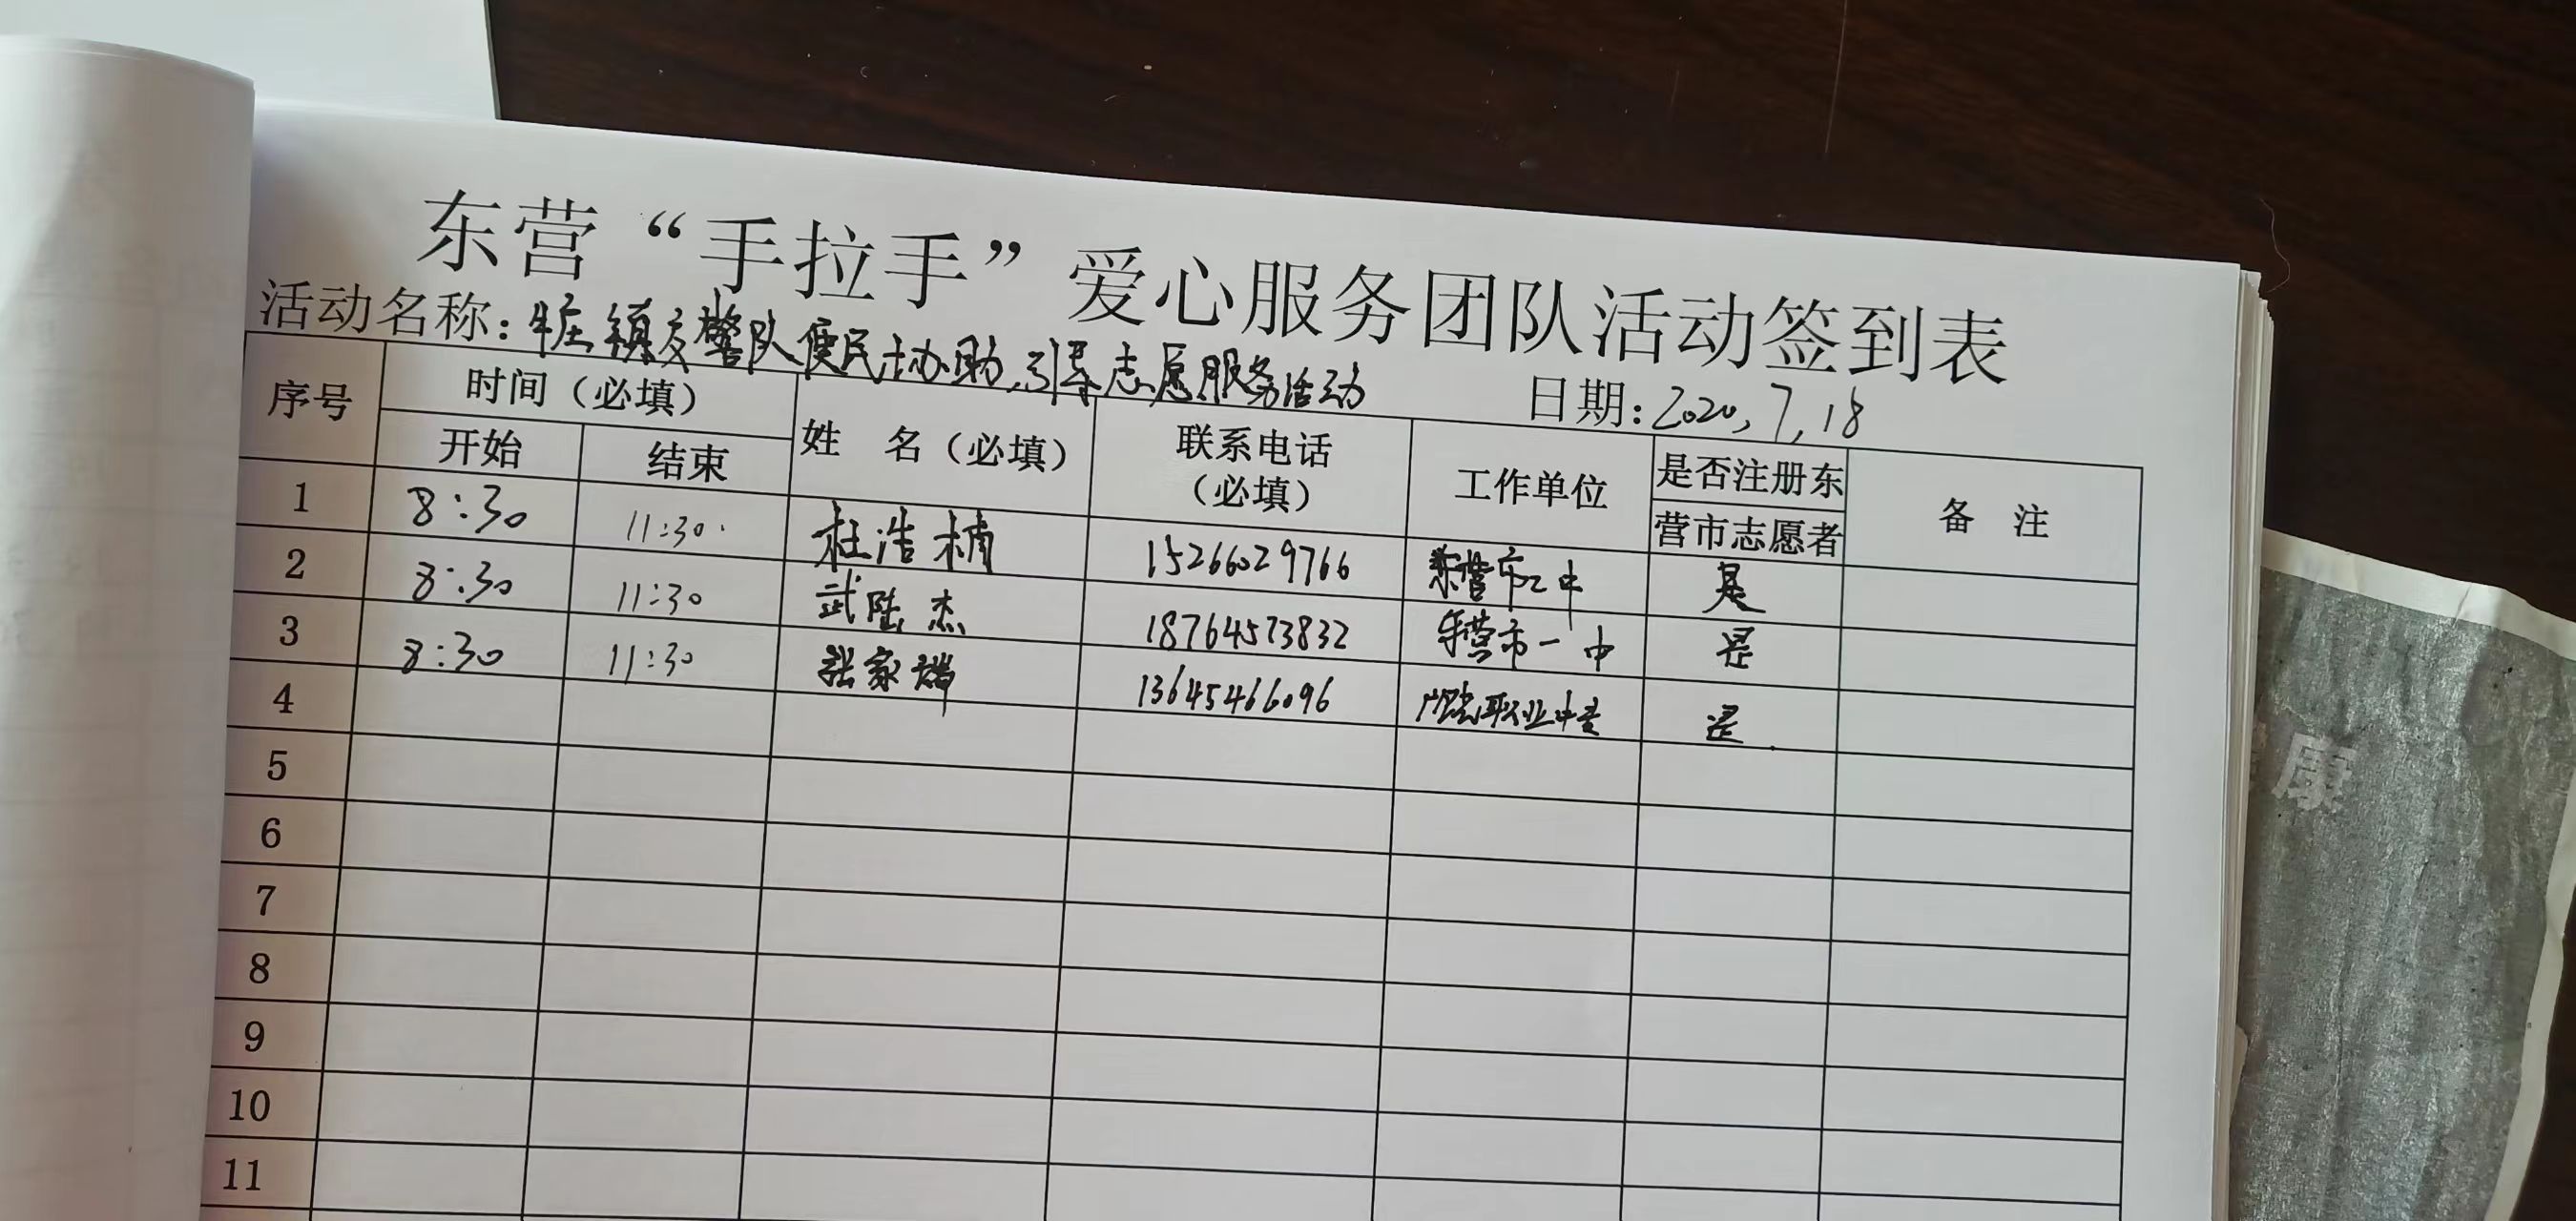 东营“手拉手”爱心服务团队活动签到表
活动名称：牛庄镇交警队便民协助、引导志愿服务活动
日期：2020，7，18
序号 时间（必填） 姓 名（必填） 联系电话（必填） 工作单位 是否注册东营市志愿者 备 注
开始 结束
1 8:30 11:30 杜浩楠 15266029766 东营市二中 是
2 8:30 11:30 武陆杰 18764573832 东营市一中 是
3 8:30 11:30 张家瑞 13645466096 职业中专 是
4
5
6
7
8
9
10
11
康